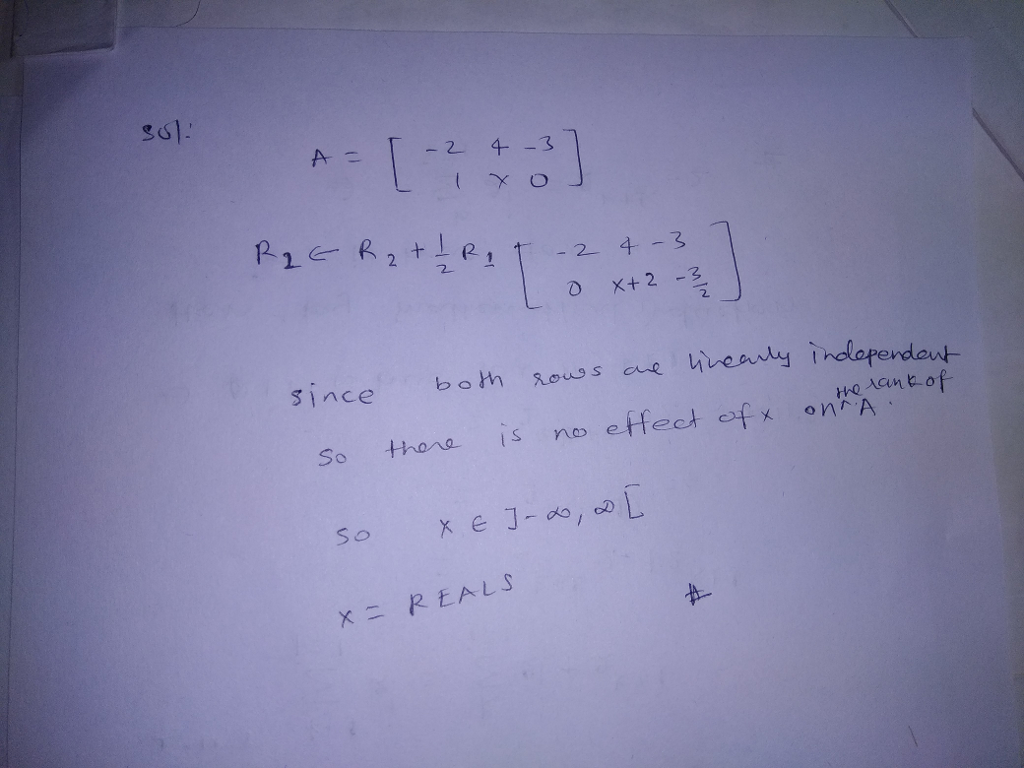 Sol:
A = [ -2 4 -3
1 x 0 ]
R2 ← R2 + 1/2 R1 [ -2 4 -3
0 x+2 -3/2 ]
since both rows are linearly independent
so there is no effect of x on the rank of A.
so x ∈ ]-∞, ∞[
x = REALS #